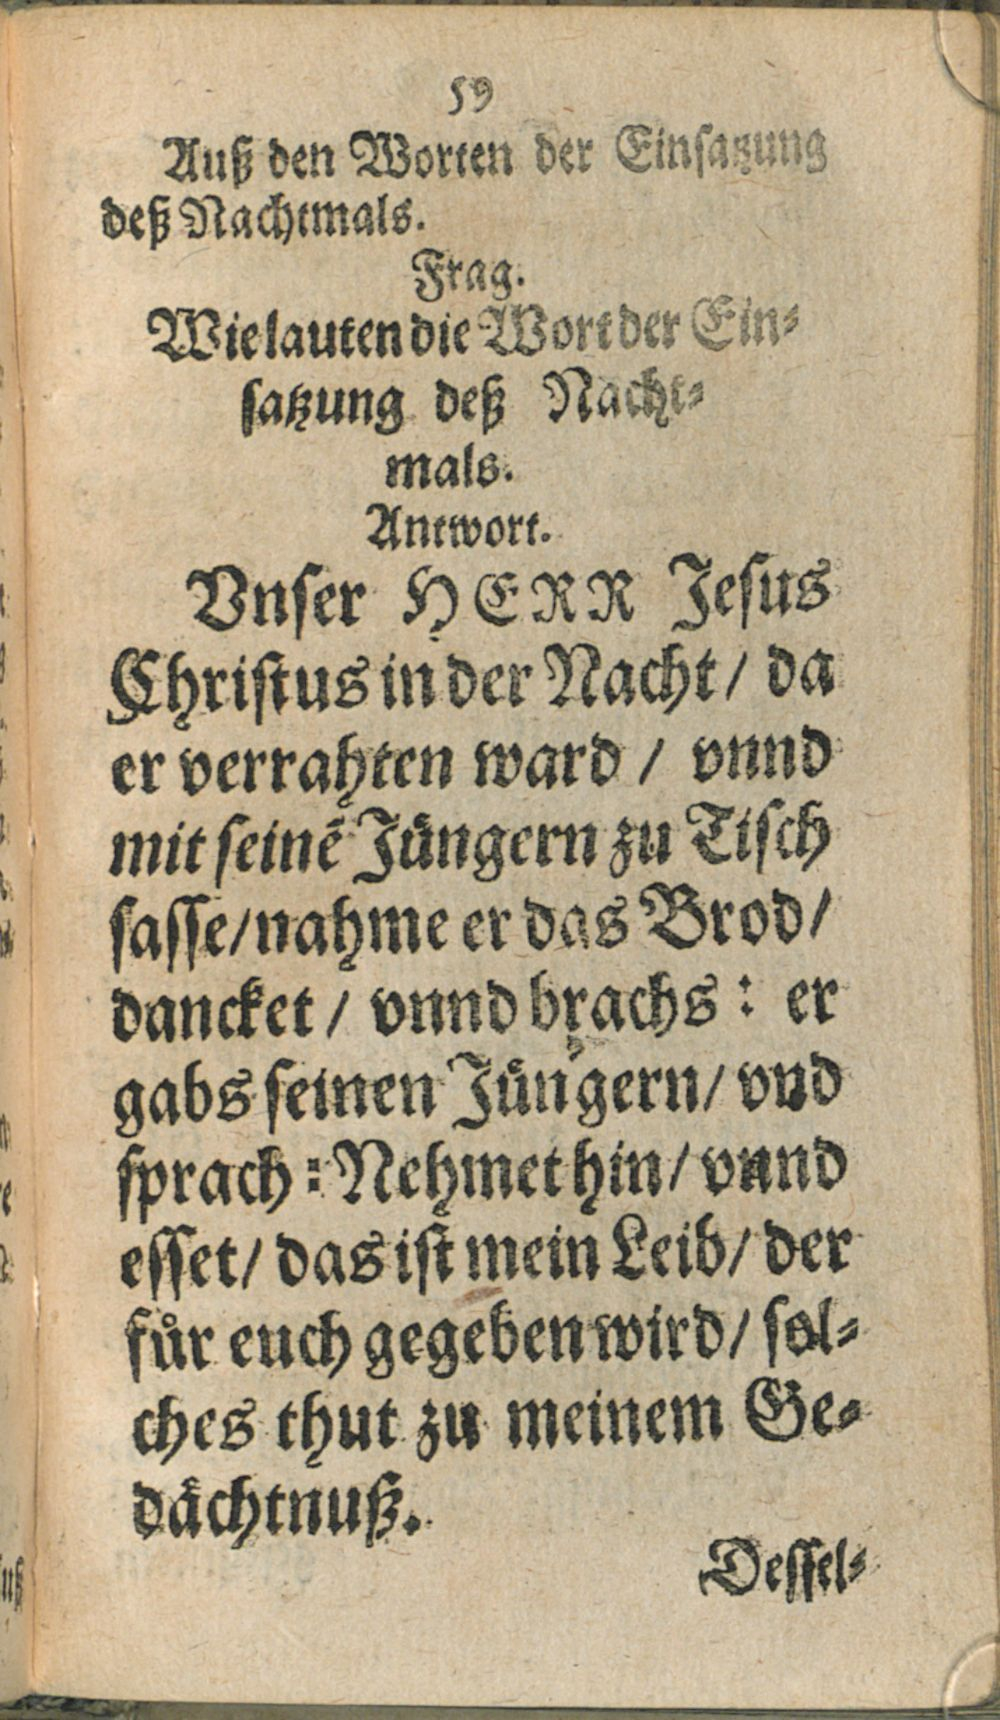 59
Auß den Worten der Einsatzung
deß Nachtmals.
Frag.
Wie lauten die Wort der Ein⸗
satzung deß Nacht⸗
mals.
Antwort.
Vnser HERR Jesus
Christus in der Nacht / da
er verrahten ward / vnnd
mit seinẽ Jüngern zu Tisch
sasse / nahme er das Brod /
dancket / vnnd brachs : er
gabs seinen Jüngern / vnd
sprach : Nehmet hin / vnnd
esset / das ist mein Leib / der
für euch gegeben wird / sol⸗
ches thut zu meinem Ge⸗
dächtnuß.
Dessel⸗